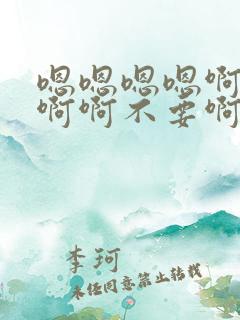 嗯嗯嗯嗯啊
啊啊不要啊
李珂
未经同意禁止转载